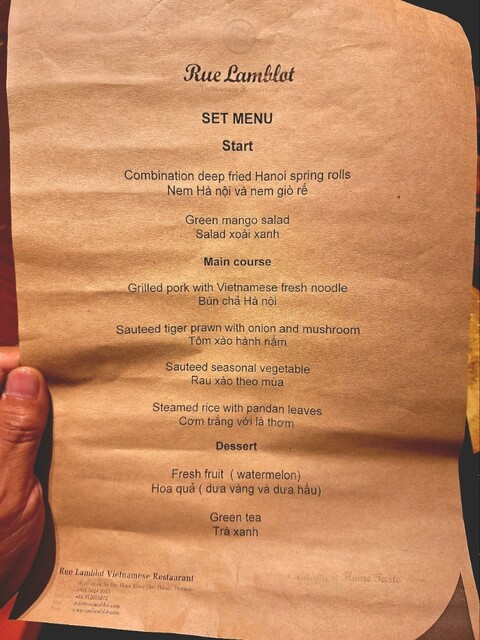 Rue Lamblot
SET MENU
Start
Combination deep fried Hanoi spring rolls
Nem Hà nội và nem giò rế
Green mango salad
Salad xoài xanh
Main course
Grilled pork with Vietnamese fresh noodle
Bún chả Hà nội
Sauteed tiger prawn with onion and mushroom
Tôm xào hành nấm
Sauteed seasonal vegetable
Rau xào theo mùa
Steamed rice with pandan leaves
Cơm trắng với lá thơm
Dessert
Fresh fruit ( watermelon)
Hoa quả ( dưa vàng và dưa hấu)
Green tea
Trà xanh
Rue Lamblot Vietnamese Restaurant
Home Taste